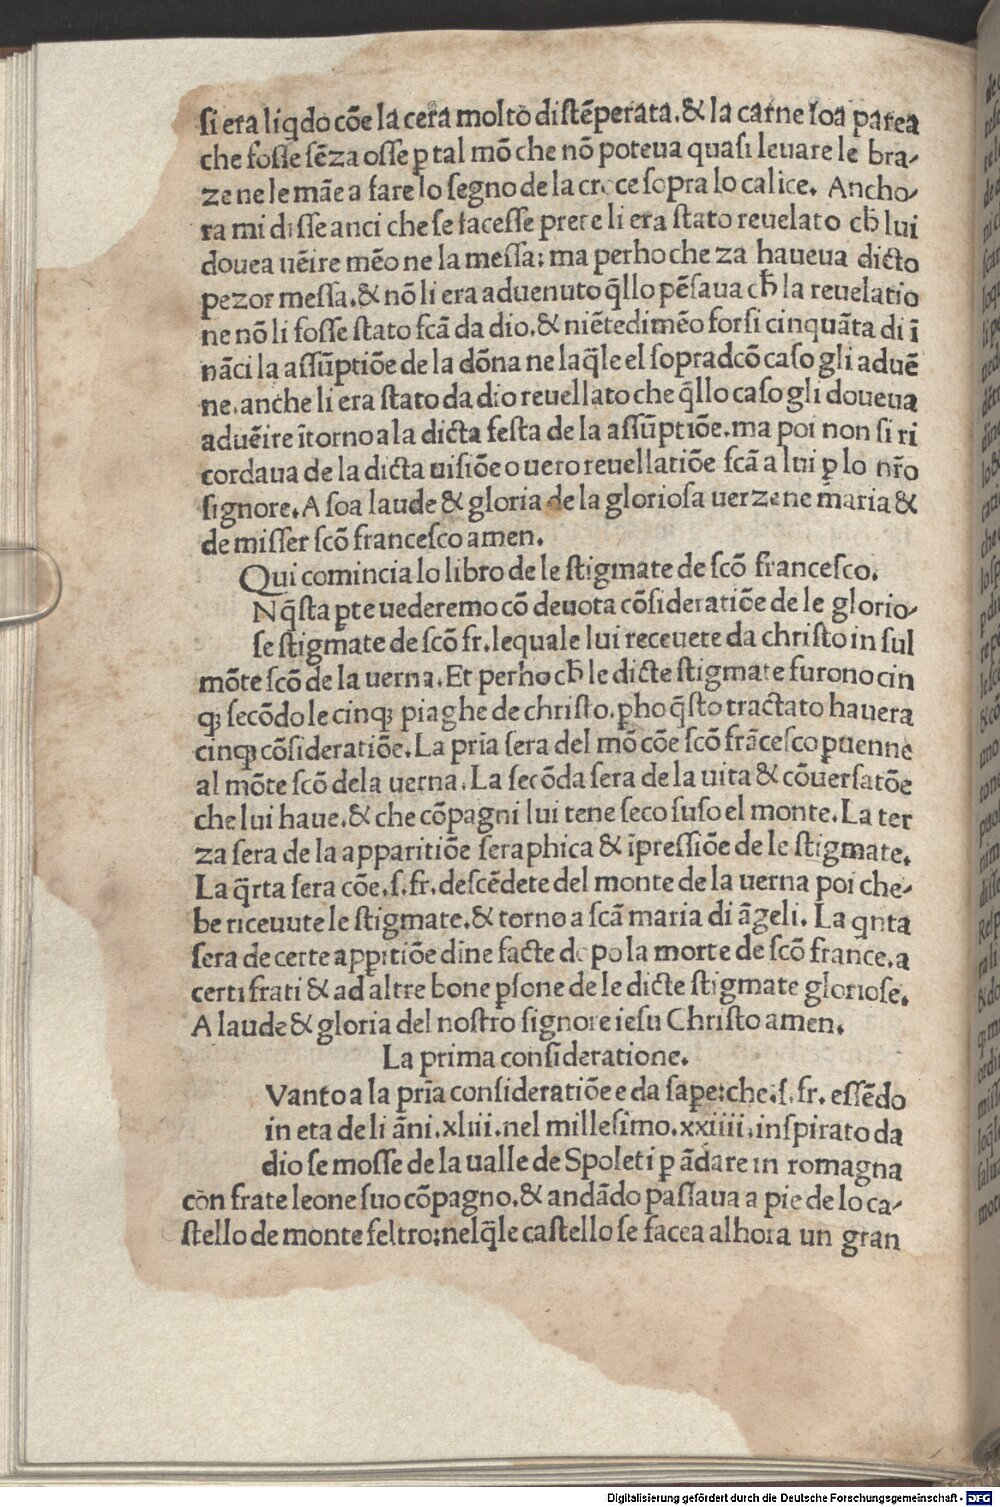 ſi era liq̄do cōe la cera molto diſtēperata.& la carne ſoa parea
che foſſe ſēza oſſe ꝑ tal mō che nō poteua quaſi leuare le bra-
ze ne le māe a fare lo ſegno de la croce ſopra lo calice. Ancho-
ra mi diſſe anci che ſe faceſſe prete li era ſtato reuelato cħ lui
douea uēire mēo ne la meſſa: ma perho che za haueua dicto
pezor meſſa.& nō li era aduenuto q̄llo pēſaua cħ la reuelatio
ne nō li foſſe ſtato ſcā da dio.& niētedimēo forſi cinquāta di ī
nāci la aſſūptiōe de la dōna ne laq̄le el ſopradcō caſo gli aduē
ne.anche li era ſtato da dio reuellato che q̄llo caſo gli doueua
aduēire ītorno a la dicta feſta de la aſſūptiōe.ma poi non ſi ri
cordaua de la dicta uiſiōe o uero reuellatiōe ſcā a lui ꝑ lo nr̄o
ſignore.A ſoa laude & gloria de la glorioſa uerzene maria &
de miſſer ſcō franceſco amen.
Qui comincia lo libro de le ſtigmate de ſcō franceſco.
Nq̄ſta ꝑte uederemo cō deuota cōſideratiōe de le glorio-
ſe ſtigmate de ſcō fr.lequale lui receuete da chriſto in ſul
mōte ſcō de la uerna.Et perho cħ le dicte ſtigmate furono cin
qꝫ ſecōdo le cinqꝫ piaghe de chriſto.ꝑho q̄ſto tractato hauera
cinqꝫ cōſideratiōe.La pria ſera del mō cōe ſcō frāceſco puenne
al mōte ſcō dela uerna.La ſecōda ſera de la uita & cōuerſatōe
che lui haue.& che cōpagni lui tene ſeco ſuſo el monte.La ter
za ſera de la apparitiōe ſeraphica & īpreſſiōe de le ſtigmate.
La q̄rta ſera cōe.ſ.fr.deſcēdete del monte de la uerna poi che-
be riceuute le ſtigmate.& torno a ſcā maria di āgeli. La qnta
ſera de certe appitiōe dine facte dopo la morte de ſcō france.a
certi frati & ad altre bone ꝑſone de le dicte ſtigmate glorioſe.
A laude & gloria del noſtro ſignore ieſu Chriſto amen.
La prima conſideratione.
Vanto a la pria conſideratiōe e da ſape:che.ſ.fr.eſſēdo
in eta de li āni.xliii.nel milleſimo.xxiiii.inſpirato da
dio ſe moſſe de la ualle de Spoleti ꝑ ādare in romagna
con frate leone ſuo cōpagno.& andādo paſſaua a pie de lo ca-
ſtello de monte feltro:nelq̄le caſtello ſe facea alhora un gran
Digitalisierung gefördert durch die Deutsche Forschungsgemeinschaft - DFG